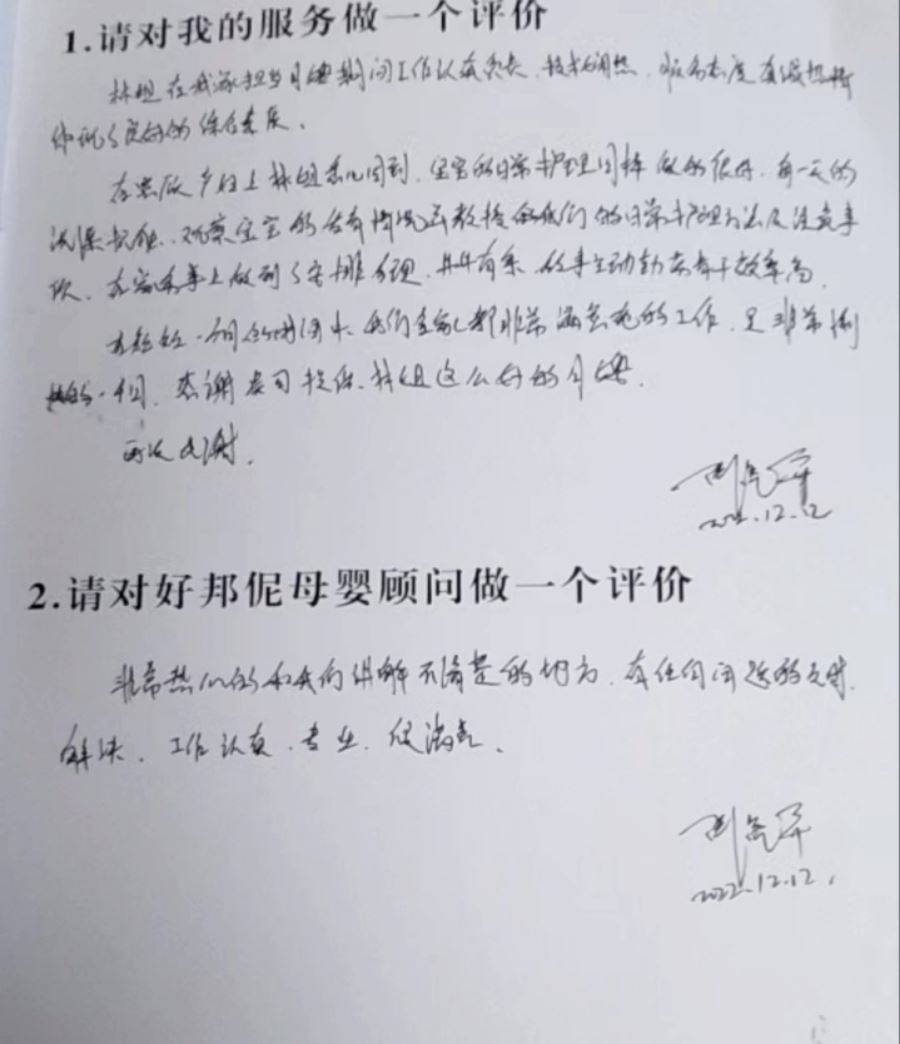 1.请对我的服务做一个评价
林姐在我家担当月嫂期间工作认真负责、技术娴熟、服务态度真诚热情
体现了良好的综合素质、
在照顾产妇上林姐悉心周到、宝宝的日常护理同样做的很好、每一天的
洗澡抚触、观察宝宝的 情况 教授给我们的日常护理方法及注意事
项、在家务事上做到了安排合理、井井有条、做事主动勤 效率高、
在 的一个月的时间中我们全家都非常满意她的工作、是非常愉
快的一个月、感谢公司提供林姐这么好的月嫂、
再次感谢、
12.12
2.请对好邦伲母婴顾问做一个评价
非常热心的和我们讲解不清楚的地方、有任何问题的及时
解决、工作认真、专业、很满意、
2022.12.12、